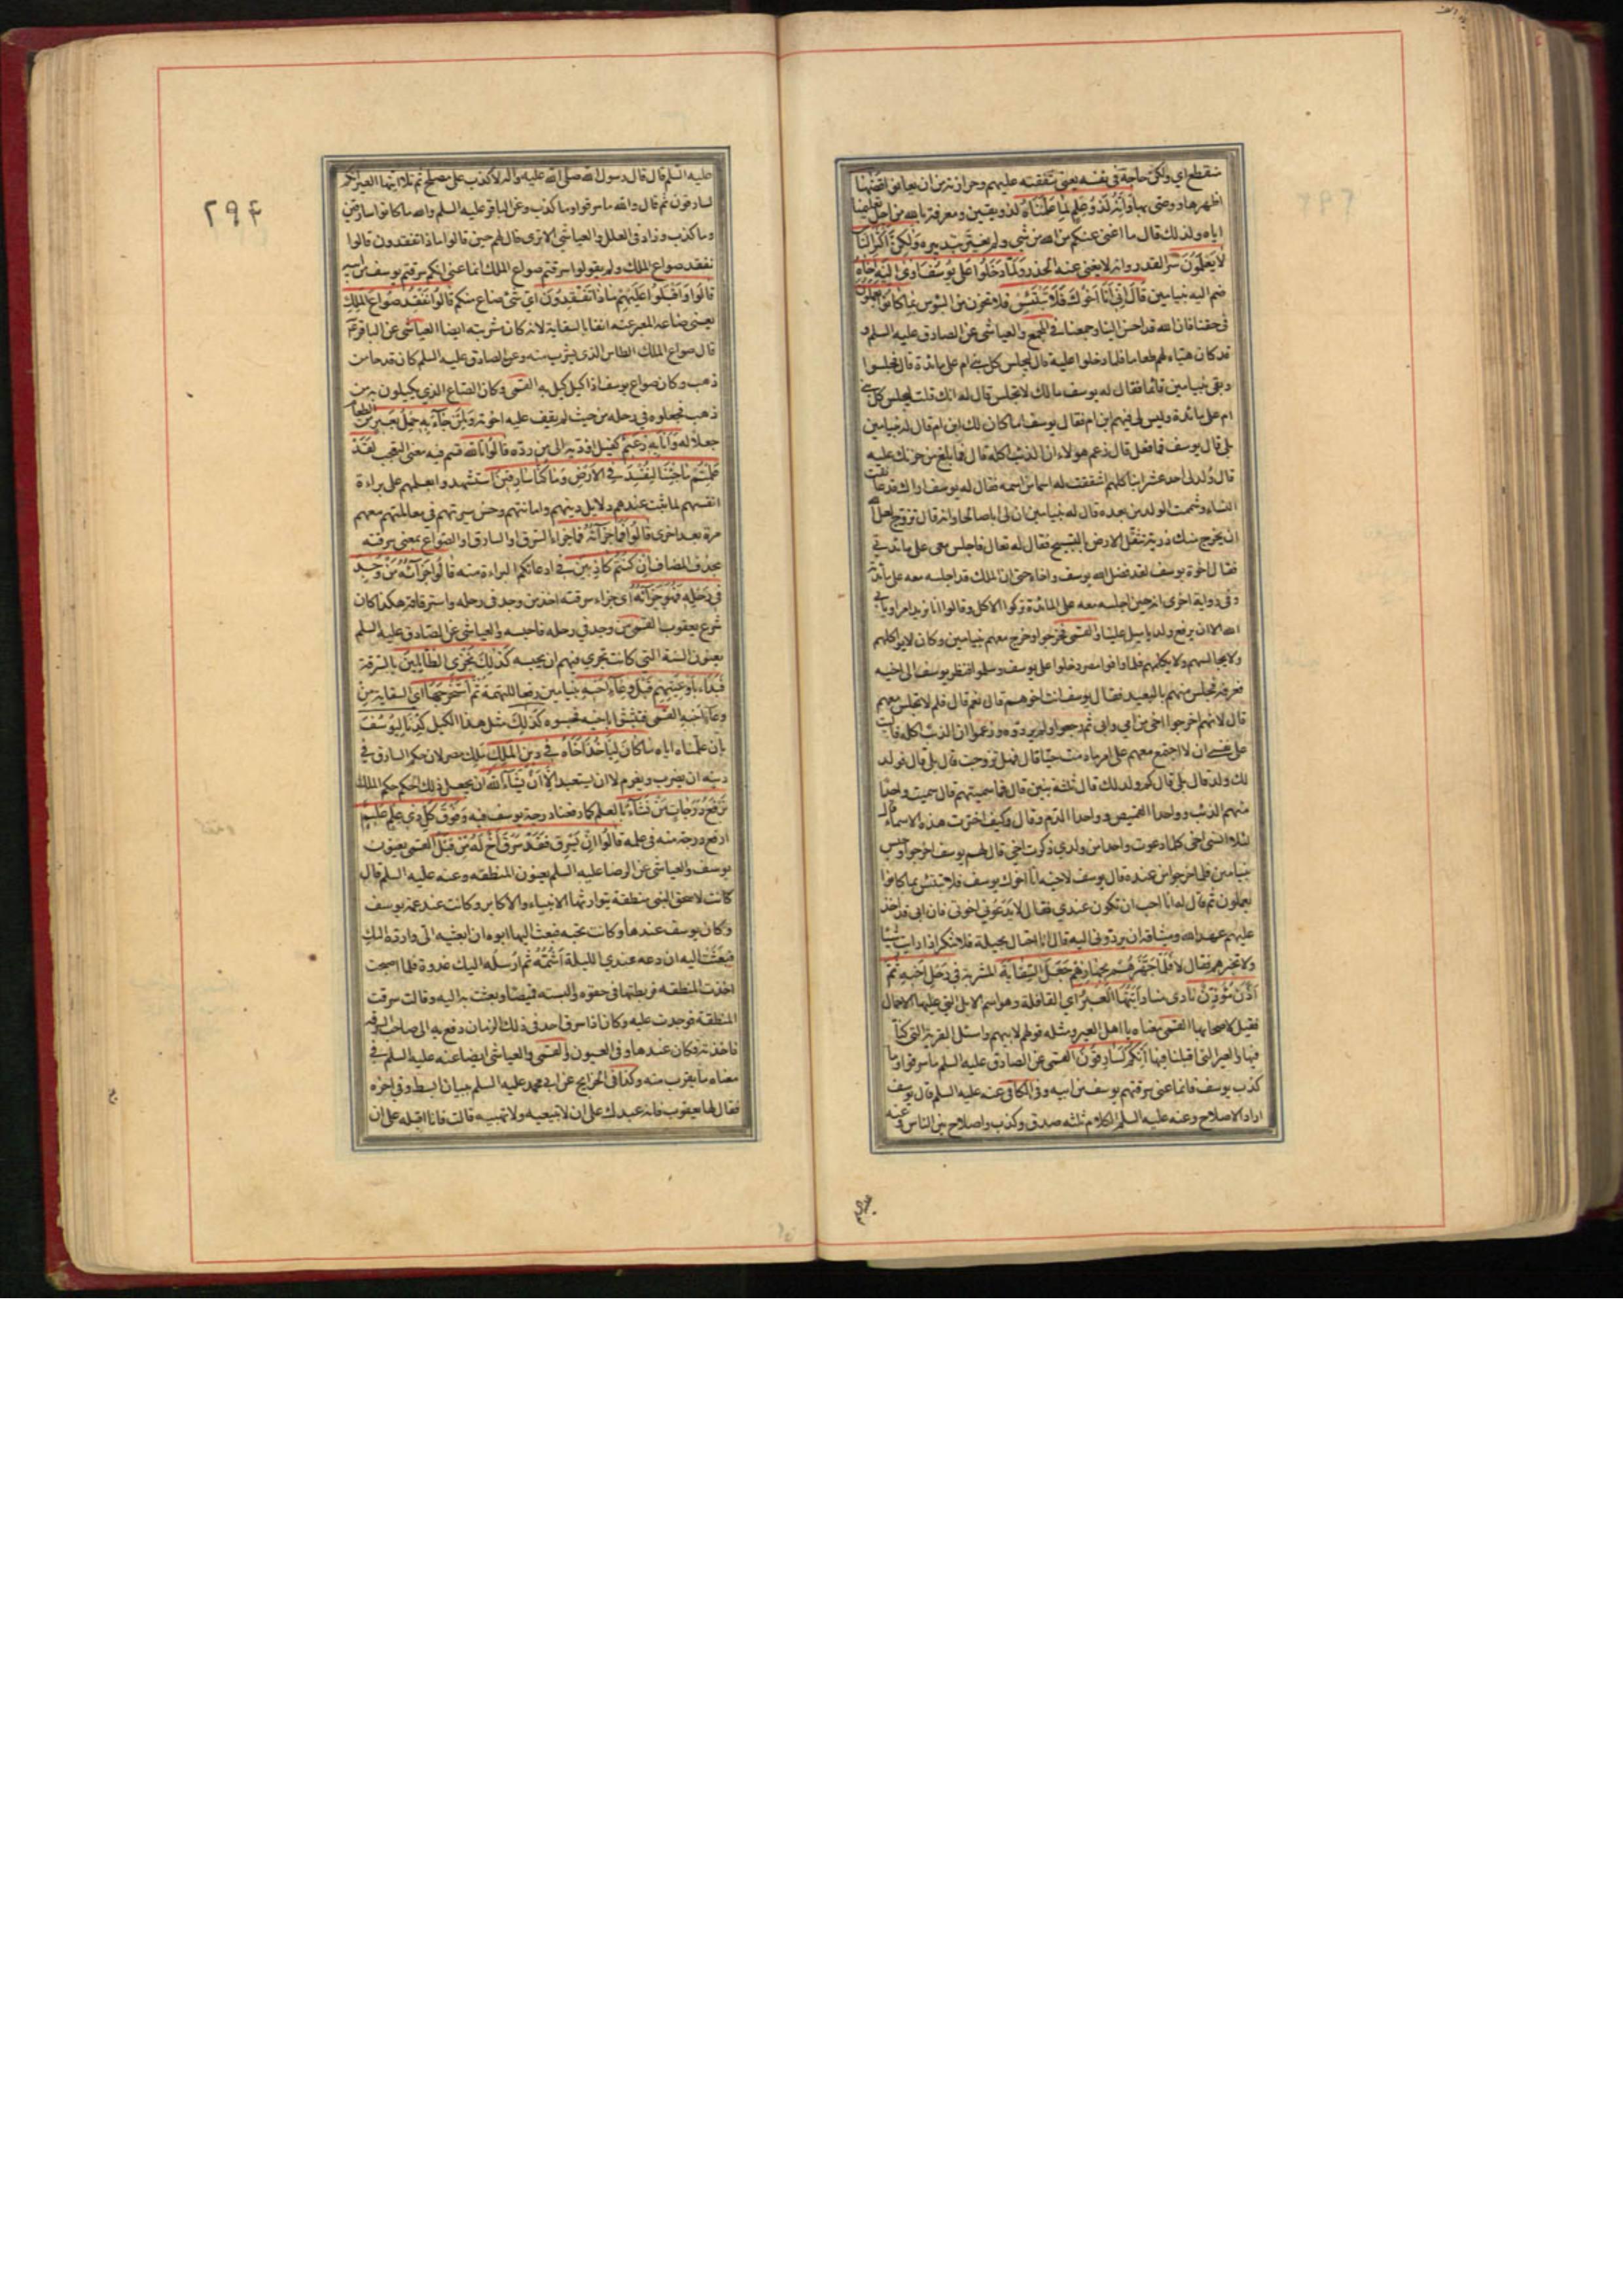 منقطع اي ولكن حاجة في نفسه يعني شفقته عليهم وحرازته من ان يعانوا قضٰيها
اظهرها ووصّى بها وَاِنَّهُ لَذُو عِلْمٍ لِمَا عَلَّمْنَاهُ لذو يقين ومعرفة بالله من اجل تعليمنا
اياه ولذلك قال ما اغنى عنكم من الله من شي ولم يغترّ بتدبيره وَلٰكِنَّ اَكْثَرَ النَّاسِ
لَا يَعْلَمُونَ سرّ القدر وانه لا يغني عنه الحذر وَلَمَّا دَخَلُوا عَلَى يُوسُفَ اٰوٰى اِلَيْهِ اَخَاهُ
ضم اليه بنيامين قَالَ اِنِّي اَنَا اَخُوكَ فَلَا تَبْتَئِسْ فلا تحزن من البؤس بِمَا كَانُوا يَعْمَلُونَ
في حقنا فان الله قد احسن الينا وجمعنا في المجمع والعياشي عن الصادق عليه السلم و
قد كان هيّاء لهم طعاما فلما دخلوا عليه قال ليجلس كل بني ام على مائدة قال فجلسوا
وبقي بنيامين قائما فقال له يوسف مالك لا تجلس قال له انك قلت ليجلس كل بني
ام على مائدة وليس لي فيهم ابن ام فقال يوسف اما كان لك ابن ام قال له بنيامين
بلى قال يوسف فما فعل قال زعم هؤلاء ان الذئب اكله قال فما بلغ من حزنك عليه
قال ولد لي احد عشر ابنا كلهم اشتققت له اسما من اسمه فقال له يوسف اراك قد عانقت
النساء وشممت الولد من بعده قال له بنيامين ان لي ابا صالحا وانه قال تزوج لعل الله
ان يخرج منك ذرية تثقل الارض بالتسبيح فقال له تعال فاجلس معي على مائدتي
فقال اخوة يوسف لقد فضل الله يوسف واخاه حتى ان الملك قد اجلسه معه على مائدته
وفي رواية اخرى انه حين اجلسه معه على المائدة تركوا الاكل وقالوا انا نريد امرا ويابى
الله الا ان يرفع ولد ياميل علينا والقمي فخرجوا وخرج معهم بنيامين وكان لا يواكلهم
ولا يجالسهم ولا يكلمهم فلما وافوا مصر دخلوا على يوسف وسلموا فنظر يوسف الى اخيه
فعرفه فجلس منهم بالبعيد فقال يوسف انت اخوهم قال نعم قال فلم لا تجلس معهم
قال لانهم اخرجوا اخي من امي وابي ثم رجعوا ولم يردوه وزعموا ان الذئب اكله فاليت
على نفسي ان لا اجتمع معهم على امر ما دمت حيّا قال فهل تزوجت قال بلى قال فولد
لك ولد قال بلى قال كم ولد لك قال ثلثة بنين قال فما سميتهم قال سميت واحدا
منهم الذئب وواحدا القميص وواحدا الدّم وقال وكيف اخترت هذه الاسماء قال
لئلا انسى اخي كلما دعوت واحدا من ولدي ذكرت اخي قال لهم يوسف اخرجوا وحبس
بنيامين فلما خرجوا من عنده قال يوسف لاخيه انا اخوك يوسف فلا تبتئس بما كانوا
يعملون ثم قال له انا احب ان تكون عندي فقال لا يدَعُوني اخوتي فان ابي قد اخذ
عليهم عهد الله وميثاقه ان يردوني اليه قال انا احتال بحيلة فلا تنكر اذا رايت شيئا
ولا تخبرهم فقال لا فَلَمَّا جَهَّزَهُمْ بِجَهَازِهِمْ جَعَلَ السِّقَايَةَ المشربة فِي رَحْلِ اَخِيهِ ثُمَّ
اَذَّنَ مُؤَذِّنٌ نادى مناد اَيَّتُهَا الْعِيرُ اي القافلة وهو اسم الابل التي عليها الاحمال
فقيل لاصحابها القمي معناه يا اهل العير ومثله قولهم لابيهم واسئل القرية التي كنّا
فيها والعير التي اقبلنا فيها اِنَّكُمْ لَسَارِقُونَ القمي عن الصادق عليه السلم ما سرقوا وما
كذب يوسف فانما عنى سرقتم يوسف من ابيه وفي الكافي عنه عليه السلم قال يوسف
اراد الاصلاح وعنه عليه السلم الكلام ثلثه صدق وكذب واصلاح بين الناس وعنه
۲۹۴
عليه السّلم قال قال رسول الله صلى الله عليه واله لا كذب على مصلح ثم تلا ايتها العير انكم
لسارقون ثم قال والله ما سرقوا وما كذب وعن الباقر عليه السلم والله ما كانوا سارقين
وما كذب وزاد في العلل والعياشي الا ترى قال لهم حين قالوا ماذا تفقدون قالوا
نفقد صواع الملك ولم يقولوا سرقتم صواع الملك انما عنى انكم سرقتم يوسف من ابيه
قَالُوا وَاَقْبَلُوا عَلَيْهِمْ مَاذَا تَفْقِدُونَ اي شئ ضاع منكم قَالُوا نَفْقِدُ صُوَاعَ الْمَلِكِ
يعني صاعه المعبر عنه انفا بالسقاية لانه كان مشربته ايضا العياشي عن الباقر ع
قال صواع الملك الطاس الذي يشرب منه وعن الصادق عليه السلم كان قدحا من
ذهب وكان صواع يوسف اذا كيل كيل به القمي وكان الصّاع الذي يكيلون به من
ذهب فجعلوه في رحله من حيث لم يقف عليه اخوته وَلِمَنْ جَاءَ بِهِ حِمْلُ بَعِيرٍ من الطعام
جعلا له وَاَنَا بِهِ زَعِيمٌ كفيل اؤدّيه الى من ردّه قَالُوا تَاللّٰهِ قسم فيه معنى التعجب لَقَدْ
عَلِمْتُمْ مَا جِئْنَا لِنُفْسِدَ فِي الْاَرْضِ وَمَا كُنَّا سَارِقِينَ استشهدوا بعلمهم على براءة
انفسهم لما ثبت عندهم دلايل دينهم وامانتهم وحسن سيرتهم في معاملتهم معهم
مرة بعد اخرى قَالُوا فَمَا جَزَاؤُهُ فما جزاء السّرق او السارق او الصّواع بمعنى سرقته
بحذف المضاف اِنْ كُنْتُمْ كَاذِبِينَ في ادعائكم البراءة منه قَالُوا جَزَاؤُهُ مَنْ وُجِدَ
فِي رَحْلِهِ فَهُوَ جَزَاؤُهُ اي جزاء سرقته اخذ من وجد في رحله واسترقاقه هكذا كان
شرع يعقوب القمي من وجد في رحله فاحبسه والعياشي عن الصّادق عليه السلم
يعنون السّنة التي كانت تجري فيهم ان يحبسه كَذٰلِكَ نَجْزِي الظَّالِمِينَ بالسّرقة
فَبَدَاَ بِاَوْعِيَتِهِمْ قَبْلَ وِعَاءِ اَخِيهِ بنيامين دفعا للتهمة ثُمَّ اسْتَخْرَجَهَا اي السقاية مِنْ
وِعَاءِ اَخِيهِ القمي فتشبّثوا باخيه فحبسوه كَذٰلِكَ مثل هذا الكيل كِدْنَا لِيُوسُفَ
بان علّمناه اياه مَا كَانَ لِيَاْخُذَ اَخَاهُ فِي دِينِ الْمَلِكِ ملك مصر لان حكم السارق في
دينه ان يضرب ويغرم لا ان يستعبد اِلَّا اَنْ يَشَاءَ اللّٰهُ ان يجعل ذلك الحكم حكم الملك
نَرْفَعُ دَرَجَاتٍ مَنْ نَشَاءُ بالعلم كما رفعنا درجة يوسف فيه وَفَوْقَ كُلِّ ذِي عِلْمٍ عَلِيمٌ
ارفع درجة منه في علمه قَالُوا اِنْ يَسْرِقْ فَقَدْ سَرَقَ اَخٌ لَهُ مِنْ قَبْلُ القمي يعنون
يوسف والعياشي عن الرضا عليه السلم يعنون المنطقه وعنه عليه السلم قال
كانت لاسحق النبي منطقة يتوارثها الانبياء والاكابر وكانت عند عمة يوسف
وكان يوسف عندها وكانت تحبه فبعث اليها ابوه ان ابعثيه الي وارده اليك
فبعثت اليه ان دعه عندي الليلة اشمّه ثم ارسله اليك غدوة فلما اصبحت
اخذت المنطقه فربطتها في حقوه والبسته قميصا وبعثت به اليه وقالت سرقت
المنطقة فوجدت عليه وكان اذا سرق احد في ذلك الزمان دفع به الى صاحب السرقة
فاخذته فكان عندها وفي العيون والقمي والعياشي ايضا عنه عليه السلم في
معناه ما يقرب منه وكذا في الخرايج عن ابي محمد عليه السلم ببيان ابسط وفي اخره
فقال لها يعقوب فانه عبدك على ان لا تبيعيه ولا تهبيه قالت فانا اقبله على ان